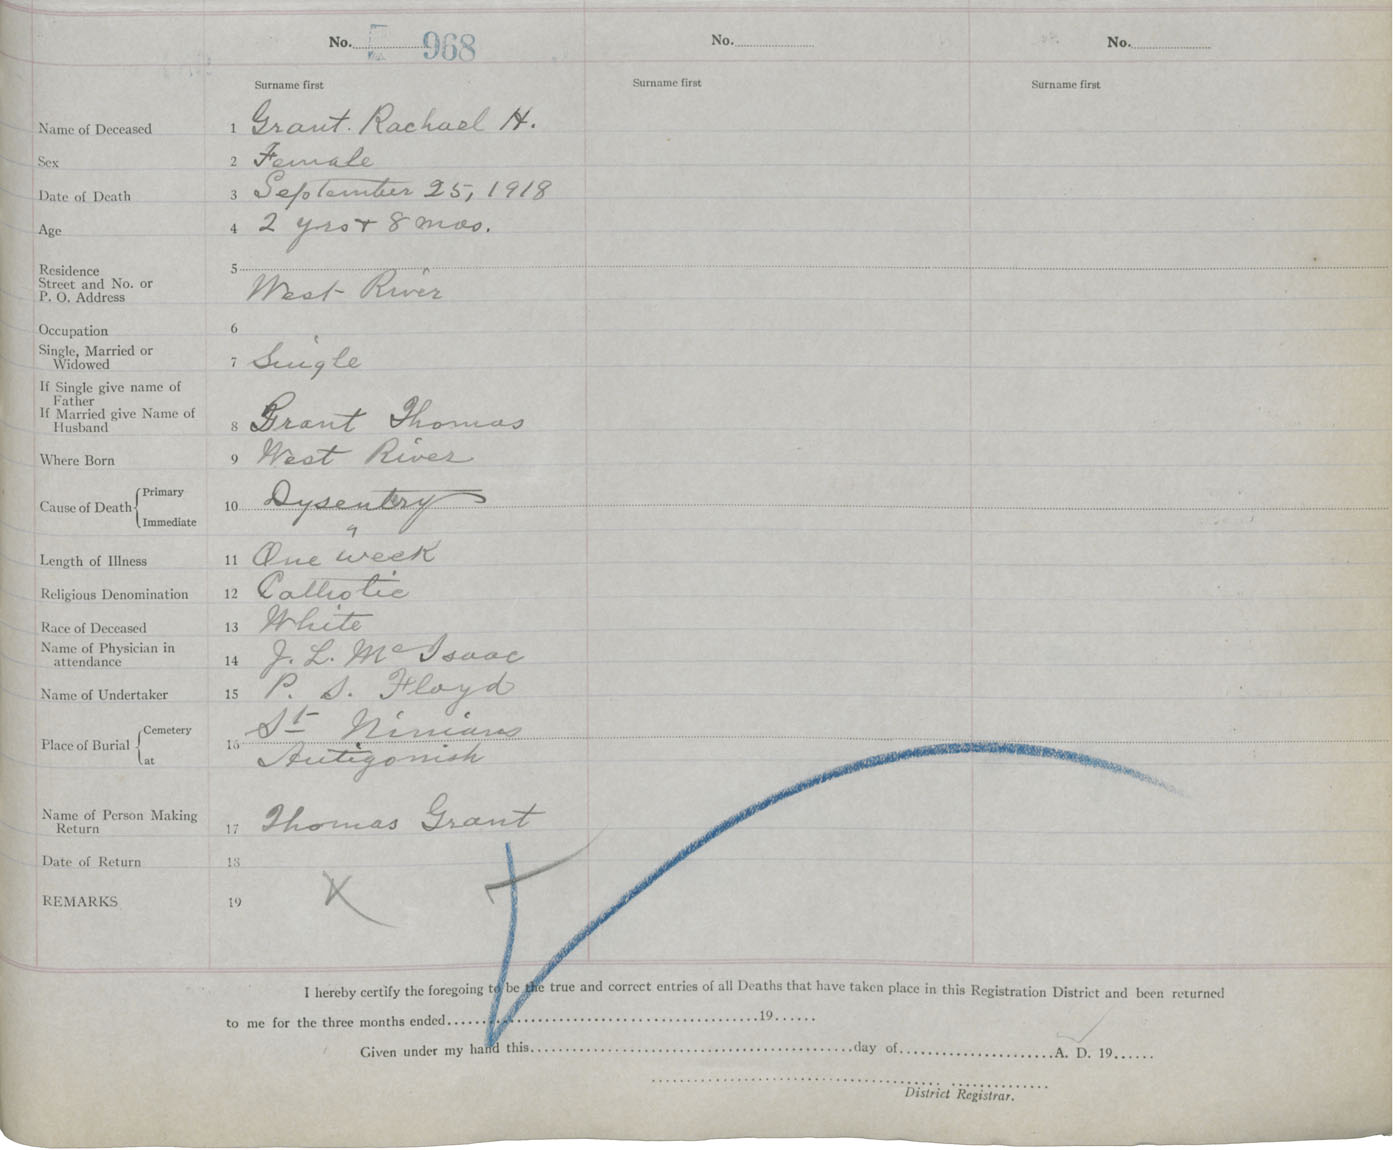 No. 968 No. No.
Surname first Surname first Surname first
Name of Deceased 1 Grant. Rachael H.
Sex 2 Female
Date of Death 3 September 25, 1918
Age 4 2 yrs + 8 mos.
Residence 5
Street and No. or
P. O. Address West River
Occupation 6
Single, Married or
Widowed 7 Single
If Single give name of
Father
If Married give Name of
Husband 8 Grant Thomas
Where Born 9 West River
Cause of Death { Primary
10 Dysentry
Immediate
Length of Illness 11 One week
Religious Denomination 12 Catholic
Race of Deceased 13 White
Name of Physician in
attendance 14 J. L. McIsaac
Name of Undertaker 15 P. S. Floyd
Place of Burial { Cemetery St Ninians
16
at Antigonish
Name of Person Making
Return 17 Thomas Grant
Date of Return 18
REMARKS 19 X
I hereby certify the foregoing to be the true and correct entries of all Deaths that have taken place in this Registration District and been returned
to me for the three months ended 19
Given under my hand this day of A. D. 19
District Registrar.